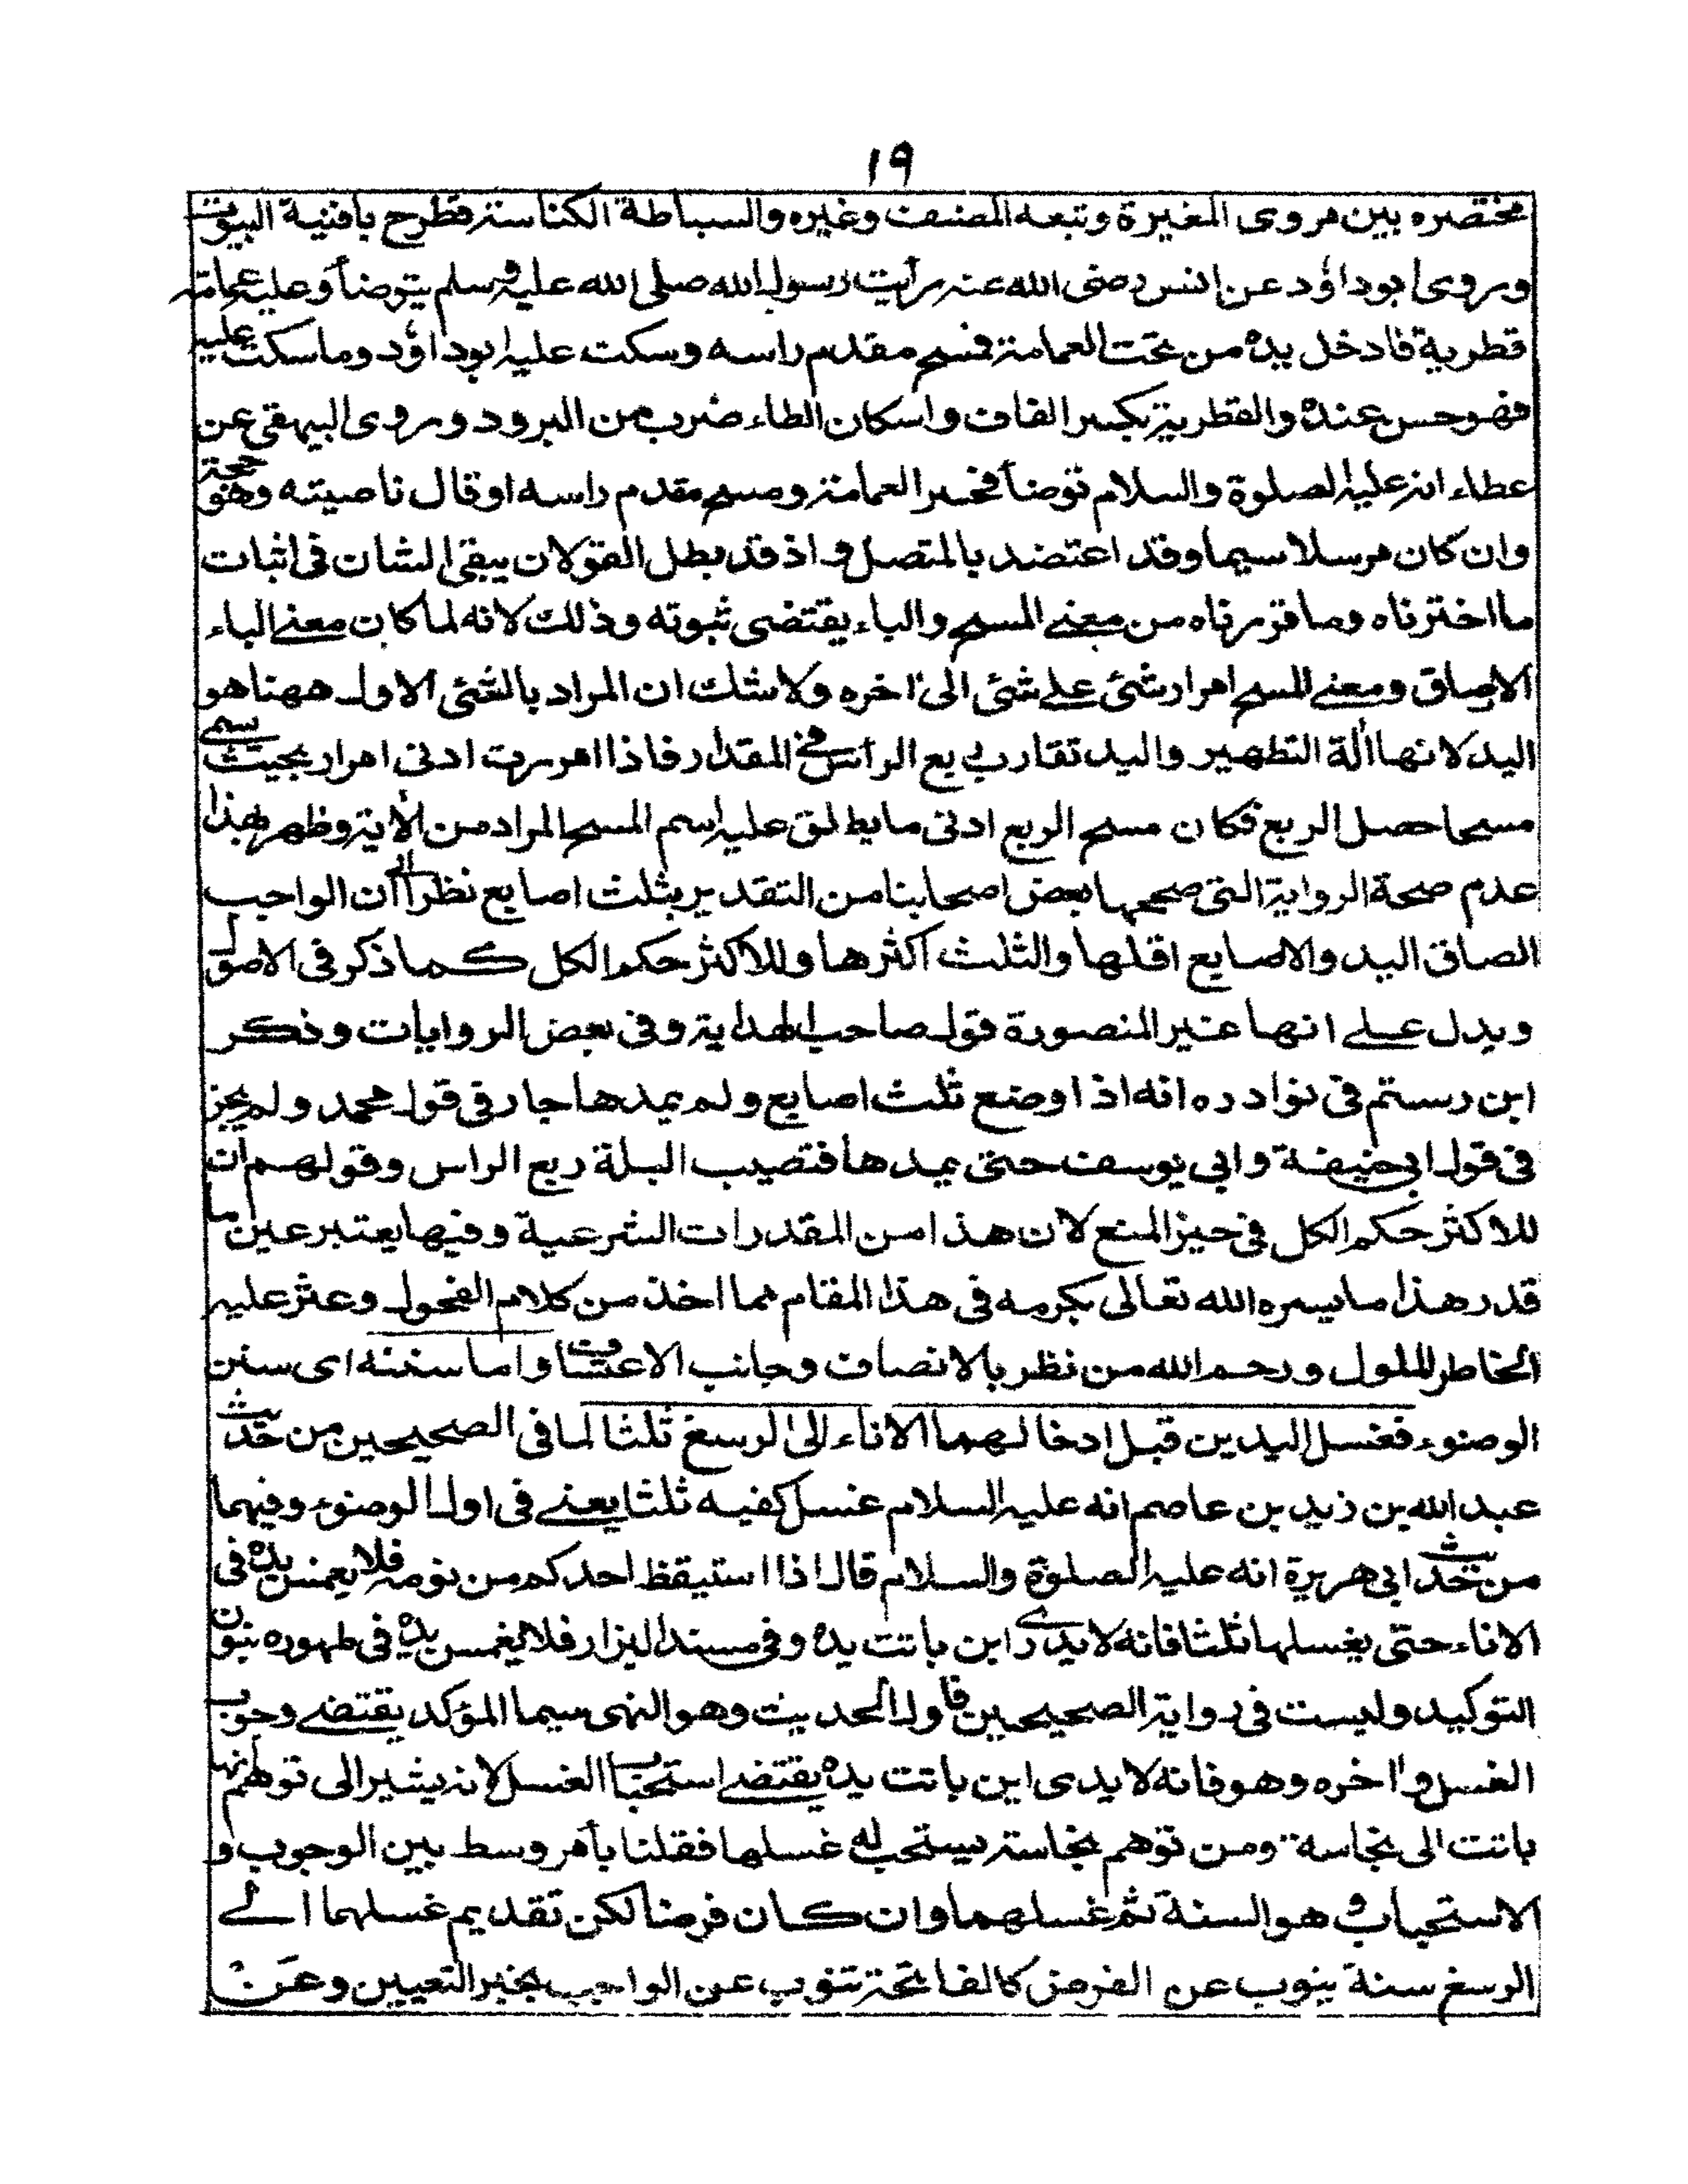 ١٩
مختصره بين مروى المغيرة وتبعه المصنف وغيره والسباطة الكناسة تطرح بافنية البيوت
وروى ابوداؤد عن انس رضى الله عنه رأيت رسول الله صلى الله عليه وسلم يتوضأ وعليه عمامة
قطرية فادخل يده من تحت العمامة فمسح مقدم راسه وسكت عليه ابوداؤد وما سكت عليه
فهو حسن عنده والقطرية بكسر القاف واسكان الطاء ضرب من البرود وروى البيهقى عن
عطاء انه عليه الصلوة والسلام توضأ فحسر العمامة ومسح مقدم راسه او قال ناصيته وهو حجة
وان كان مرسلا سيما وقد اعتضد بالمتصل و اذ قد بطل القولان يبقى الشان فى اثبات
ما اخترناه وما قررناه من معنے المسح والباء يقتضى ثبوته وذلك لانه لما كان معنے الباء
الالصاق ومعنے المسح امرار شئ علے شئ الى اخره ولا شك ان المراد بالشئ الاول ههنا هو
اليد لانها اٰلة التطهير واليد تقارب ربع الرأس فى المقدار فاذا امررت ادنى امرار بحيث سمى
مسحا حصل الربع فكان مسح الربع ادنى ما يطلق عليه اسم المسح المراد من الاٰية وظهر بهذا
عدم صحة الرواية التى صححها بعض اصحابنا من التقدير بثلث اصابع نظرا الى ان الواجب
الصاق اليد والاصابع اقلها والثلث اكثرها وللاكثر حكم الكل كما ذكر فى الاصول
ويدل علے انها غير المنصورة قول صاحب الهداية وفى بعض الروايات وذكر
ابن رستم فى نوادره انه اذا وضع ثلث اصابع ولم يمدها جاز فى قول محمد ولم يجز
فى قول ابى حنيفة وابى يوسف حتى يمدها فتصيب البلة ربع الراس وقولهم ان
للاكثر حكم الكل فى حيز المنع لان هذا من المقدرات الشرعية وفيها يعتبر عين ما
قدر هذا ما يسره الله تعالى بكرمه فى هذا المقام مما اخذ من كلام الفحول وعثر عليه
الخاطر الملول ورحم الله من نظر بالانصاف وجانب الاعتساف واما سننه اى سنن
الوضوء فغسل اليدين قبل ادخالهما الاناء الى الرسغ ثلثا لما فى الصحيحين من حديث
عبد الله بن زيد بن عاصم انه عليه السلام غسل كفيه ثلثا يعنے فى اول الوضوء وفيهما
من حديث ابى هريرة انه عليه الصلوة والسلام قال اذا استيقظ احدكم من نومه فلا يغمس يده فى
الاناء حتى يغسلها ثلثا فانه لا يدرى اين باتت يده وفى مسند البزار فلا يغمسن يده فى طهوره بنون
التوكيد وليست فى رواية الصحيحين فاول الحديث وهو النهى سيما المؤكد يقتضے وجوب
الغسل واخره وهو فانه لا يدى اين باتت يده يقتضے استحباب الغسل لانه يشير الى توهم انها
باتت الى نجاسة ومن توهم نجاسة يستحب له غسلها فقلنا بأمر وسط بين الوجوب و
الاستحباب و هو السنة ثم غسلهما وان كان فرضا لكن تقديم غسلهما الے
الرسغ سنة ينوب عن الفرض كالفاتحة تنوب عن الواجب بخبر التعيين وعن